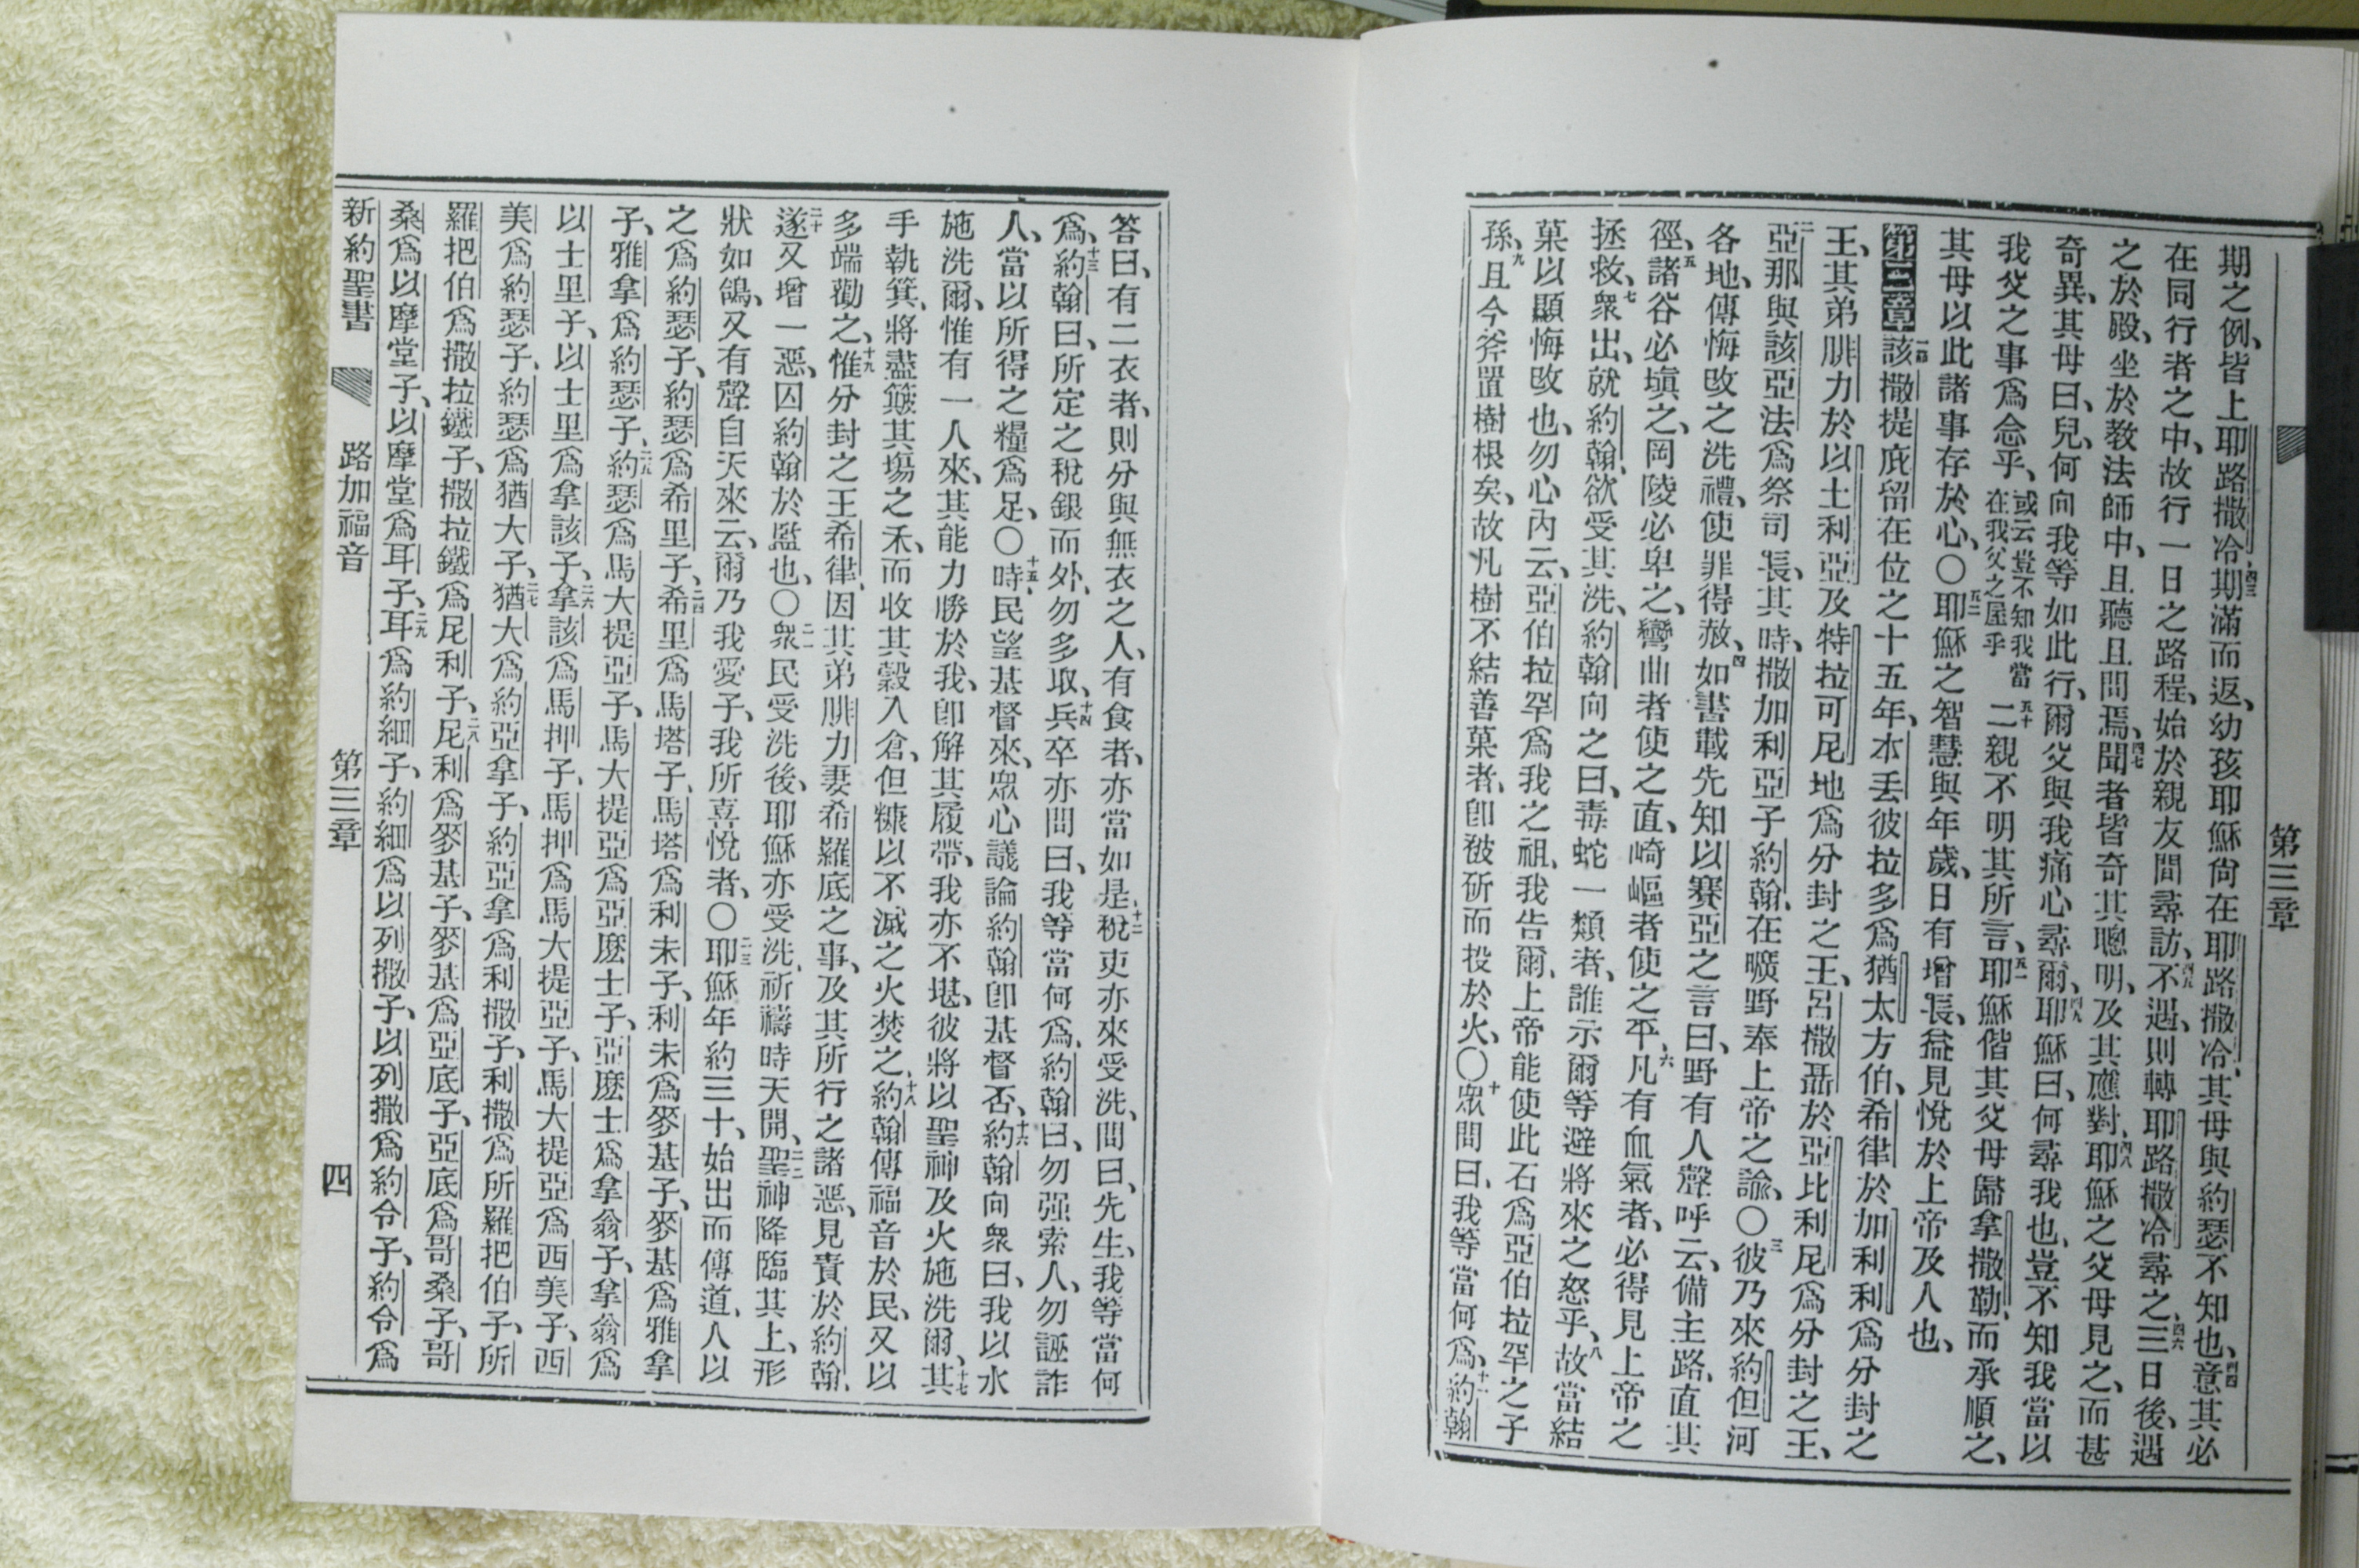 第三章
期之例、皆上耶路撒冷、四三期滿而返、幼孩耶穌尙在耶路撒冷、其母與約瑟不知也、四四意其必
在同行者之中、故行一日之路程、始於親友間尋訪、四五不遇、則轉耶路撒冷尋之、四六三日後、遇
之於殿、坐於教法師中、且聽且問焉、四七聞者皆奇其聰明、及其應對、四八耶穌之父母見之、而甚
奇異、其母曰、兒、何向我等如此行、爾父與我痛心尋爾、四九耶穌曰、何尋我也、豈不知我當以
我父之事爲念乎、或云豈不知我當在我父之屋乎五十二親不明其所言、五一耶穌偕其父母歸拿撒勒、而承順之、
其母以此諸事存於心、〇五二耶穌之智慧與年歲、日有增長、益見悅於上帝及人也、
第三章一該撒提庇留在位之十五年、本丟彼拉多爲猶太方伯、希律於加利利爲分封之
王、其弟腓力於以土利亞及特拉可尼地爲分封之王、呂撒聶於亞比利尼爲分封之王、
二亞那與該亞法爲祭司長、其時、撒加利亞子約翰、在曠野奉上帝之諭、〇三彼乃來約但河
各地、傳悔改之洗禮、使罪得赦、四如書載先知以賽亞之言曰、野有人聲呼云、備主路、直其
徑、五諸谷必塡之、岡陵必卑之、彎曲者使之直、崎嶇者使之平、六凡有血氣者、必得見上帝之
拯救、七衆出、就約翰、欲受其洗、約翰向之曰、毒蛇一類者、誰示爾等避將來之怒乎、八故當結
菓以顯悔改也、勿心內云、亞伯拉罕爲我之祖、我告爾、上帝能使此石爲亞伯拉罕之子
孫、九且今斧置樹根矣、故凡樹不結善菓者、卽砍斫而投於火、〇十衆問曰、我等當何爲、十一約翰
答曰、有二衣者、則分與無衣之人、有食者、亦當如是、十二稅吏亦來受洗、問曰、先生、我等當何
爲、十三約翰曰、所定之稅銀而外、勿多取、十四兵卒亦問曰、我等當何爲、約翰曰、勿强索人、勿誣詐
人、當以所得之糧爲足、〇十五時、民望基督來、衆心議論約翰卽基督否、十六約翰向衆曰、我以水
施洗爾、惟有一人來、其能力勝於我、卽解其履帶、我亦不堪、彼將以聖神及火施洗爾、十七其
手執箕、將盡簸其場之禾、而收其穀入倉、但糠以不滅之火焚之、十八約翰傳福音於民、又以
多端勸之、十九惟分封之王希律、因其弟腓力妻希羅底之事、及其所行之諸惡、見責於約翰、
二十遂又增一惡、囚約翰於監也、〇二一衆民受洗後、耶穌亦受洗、祈禱時天開、二二聖神降臨其上、形
狀如鴿、又有聲自天來云、爾乃我愛子、我所喜悅者、〇二三耶穌年約三十、始出而傳道、人以
之爲約瑟子、約瑟爲希里子、二四希里爲馬塔子、馬塔爲利未子、利未爲麥基子、麥基爲雅拿
子、雅拿爲約瑟子、二五約瑟爲馬大提亞子、馬大提亞爲亞麼士子、亞麼士爲拿翁子、拿翁爲
以士里子、以士里爲拿該子、二六拿該爲馬押子、馬押爲馬大提亞子、馬大提亞爲西美子、西
美爲約瑟子、約瑟爲猶大子、二七猶大爲約亞拿子、約亞拿爲利撒子、利撒爲所羅把伯子、所
羅把伯爲撒拉鐵子、撒拉鐵爲尼利子、二八尼利爲麥基子、麥基爲亞底子、亞底爲哥桑子、哥
桑爲以摩堂子、以摩堂爲耳子、二九耳爲約細子、約細爲以列撒子、以列撒爲約令子、約令爲
新約聖書 路加福音 第三章 四